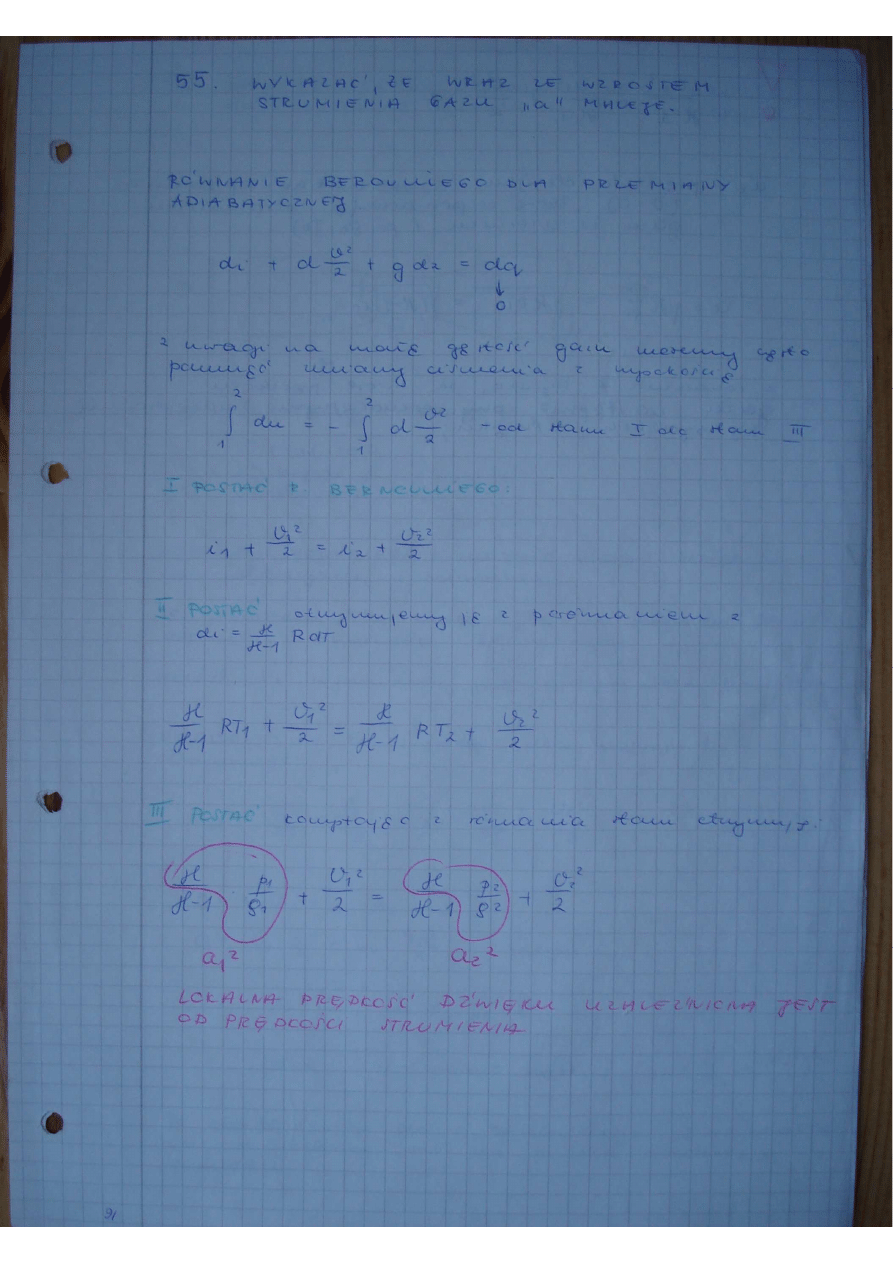 55. WYKAZAĆ, ŻE WRAZ ZE WZROSTEM
STRUMIENIA GAZU „a" MALEJE.
RÓWNANIE BERNOULLIEGO DLA PRZEMIANY
ADIABATYCZNEJ
di + d v²/2 + g dz = dq
↓
0
z uwagi na małą gęstość gazu możemy często
pominąć zmiany ciśnienia z wysokością
∫₁² di = - ∫₁² d v²/2 - od stanu I do stanu III
I POSTAĆ R. BERNOULLIEGO:
i₁ + v₁²/2 = i₂ + v₂²/2
II POSTAĆ otrzymujemy ją z porównaniem z
di = ϰ/(ϰ-1) R dT
ϰ/(ϰ-1) RT₁ + v₁²/2 = ϰ/(ϰ-1) RT₂ + v₂²/2
III POSTAĆ z równania stanu otrzymuję:
ϰ/(ϰ-1) · p₁/ρ₁ + v₁²/2 = ϰ/(ϰ-1) p₂/ρ₂ + v₂²/2
a₁² a₂²
LOKALNA PRĘDKOŚĆ DŹWIĘKU UZALEŻNIONA JEST
OD PRĘDKOŚCI STRUMIENIA
91